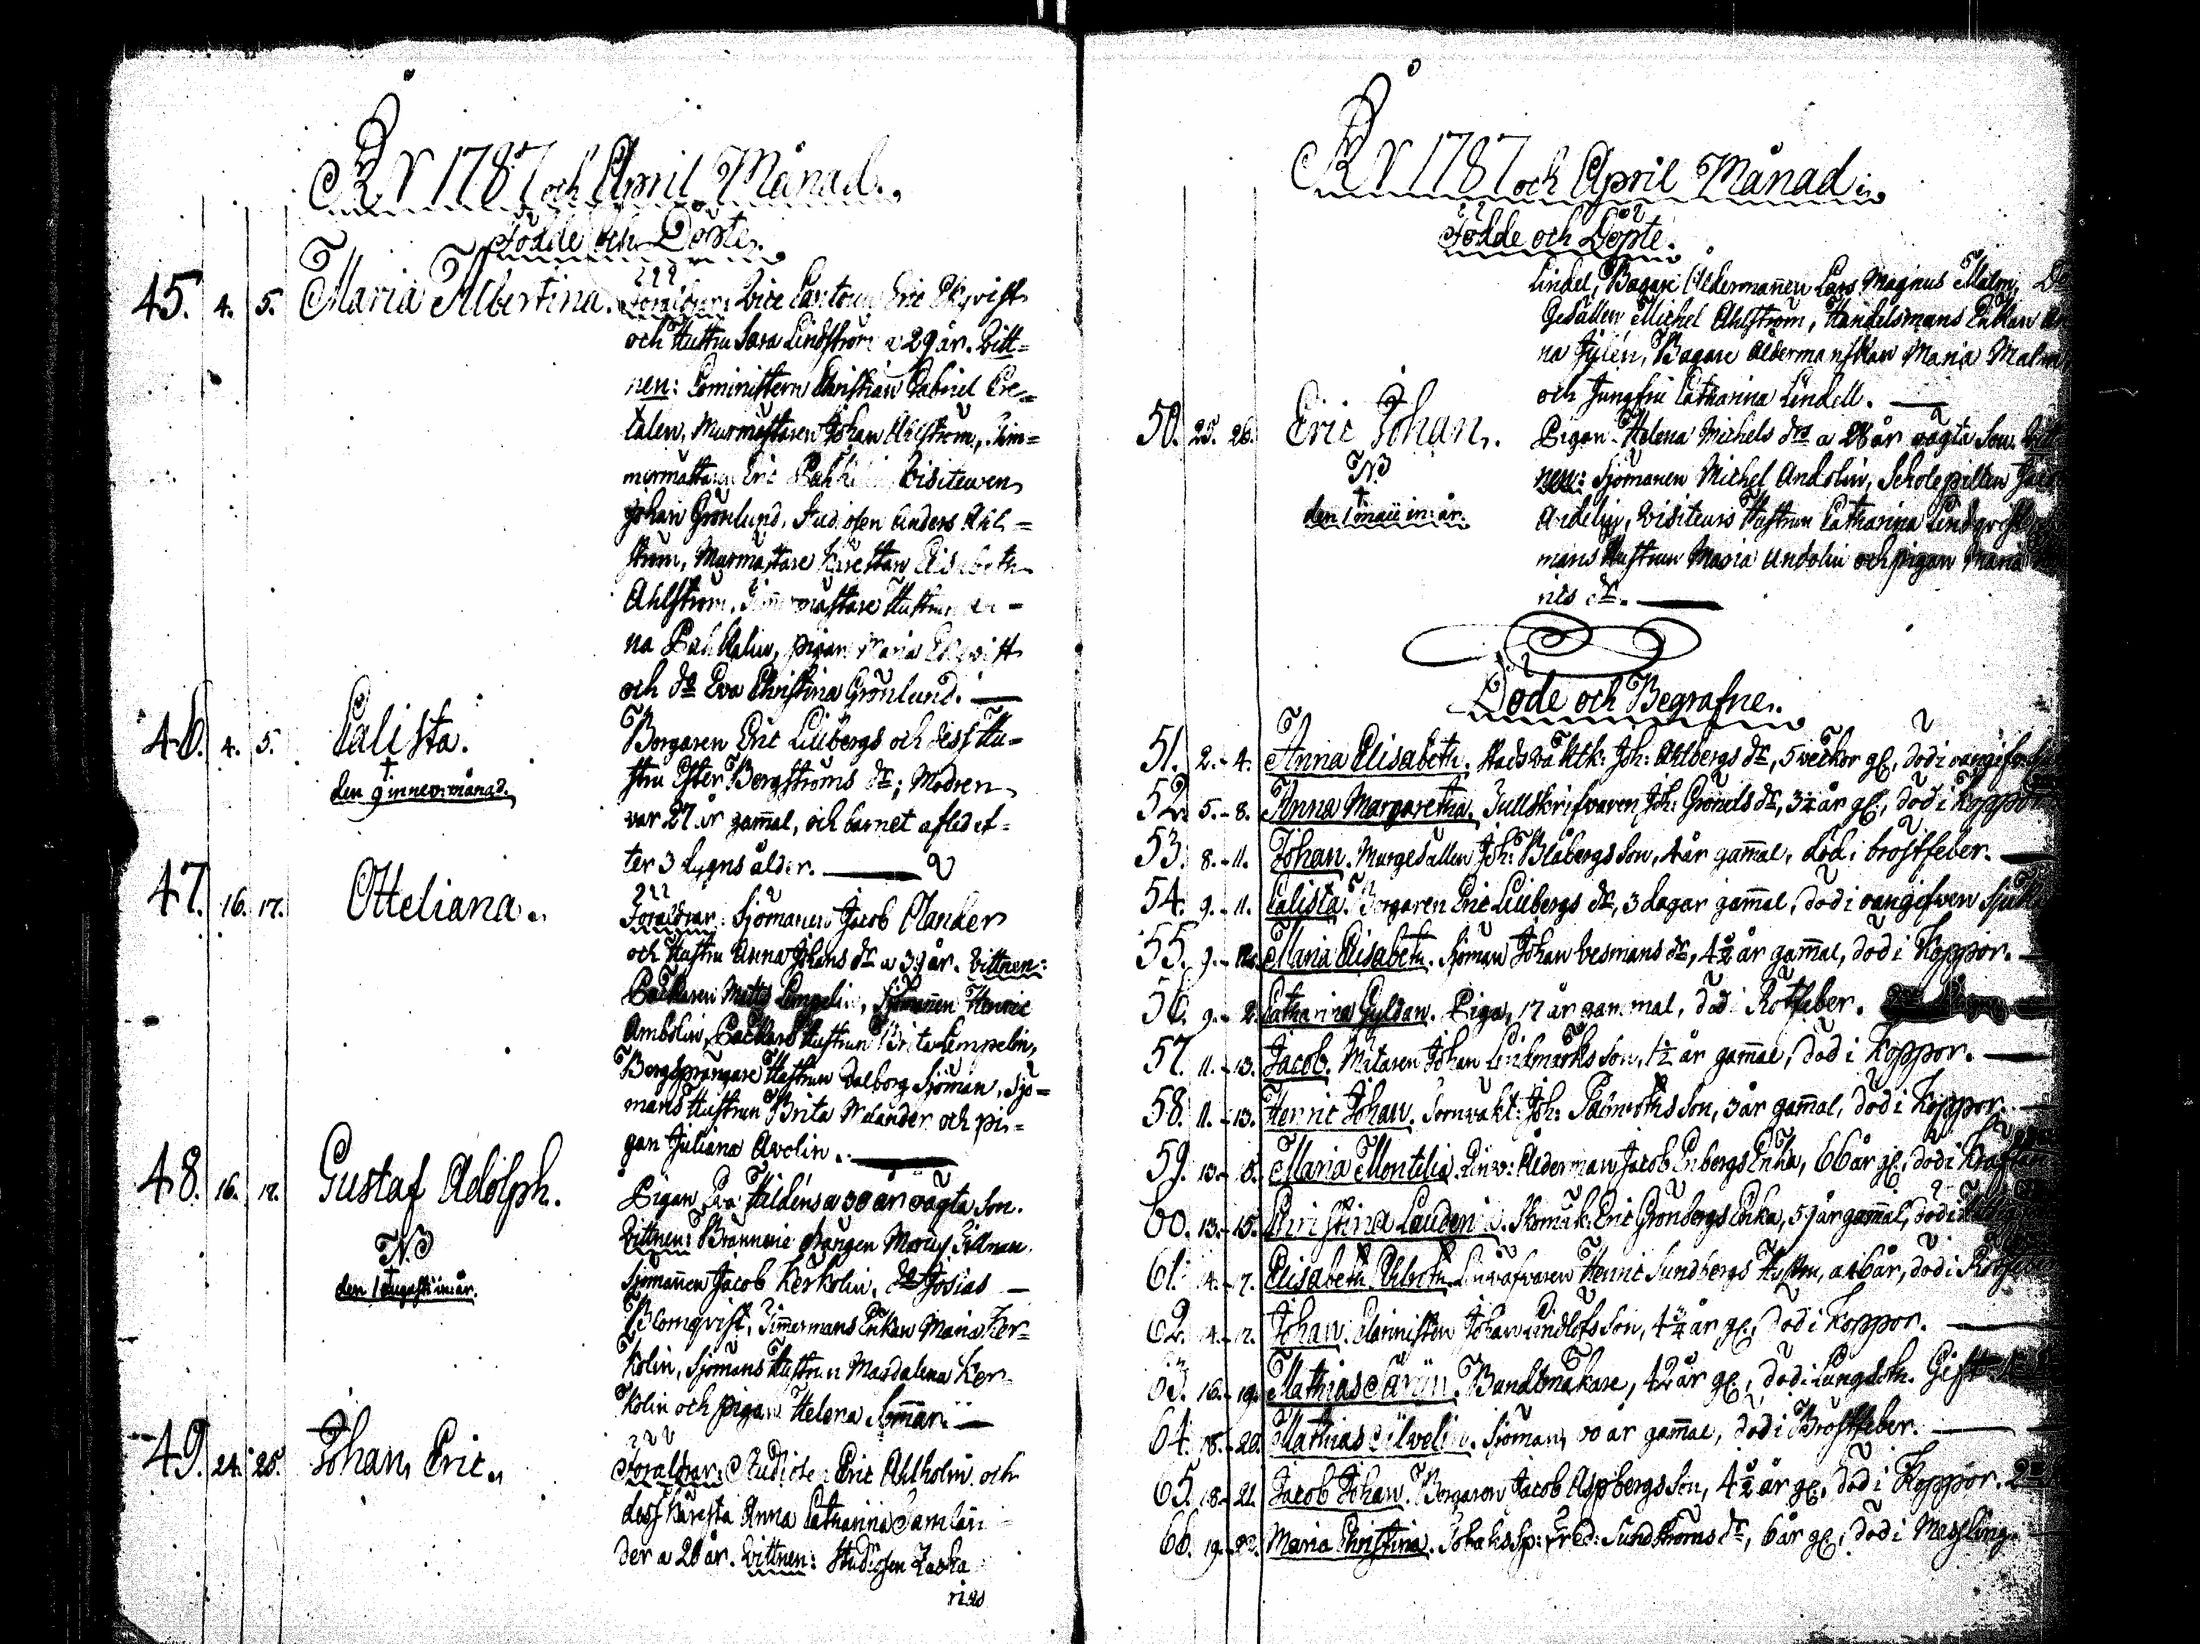 År 1787 och April Månad.
Födde och Döpte.
45. 4. 5. Maria Albertina. Föräldrar: Vice Eric Ekqvist
och Hustru Sara Lindström a 29 år. Vitt=
nen: Coministern Christian Gabriel Cre=
talen, Murmästaren Johan Ahlström, Tim=
mermästaren Eric Visiteuren
Johan Grönlund, Studiosen Anders Ahl=
ström, Murmästare Kärestan Elisabeth
Ahlström, Timmermästare Hustrun
na pigan Maria Ekqvist
och do Eva Christina Grönlund. —
46. 4. 5. Calista. Borgaren Eric Liebergs och dess Hu=
stru Ester Bergströms dr; Modren
† den 9 innev: månad. var 27 år gammal, och barnet afled ef=
ter 3 dygns ålder. —
47. 16. 17. Otteliana. Föräldrar: Sjömannen Jacob Olander
och Hustru Anna Johans dr a 39 år. Vittnen:
Backaren Matts Lempelin, Sjömannen Henric
Ambolin, Backars Hustrun Brita Lempelin,
Bergsprängare Hustrun Valborg Sjöman, Sjö=
mans Hustrun Brita Welander och pi=
gan Juliana Avolin. —
48. 16. 17. Gustaf Adolph. Pigan Eva Hildéns a 30 år oägta Son.
NB Vittnen: Brännerie drängen Tillman,
† den 1 augusti in: år. Sjömannen Jacob Kerkolin, do Josias —
Blomqvist, Timmermans Enkan Maria Ker=
kolin, Sjömans Hustrun Magdalena Ker=
kolin och pigan Helena —
49. 24. 25. Johan Eric. Föräldrar: Studiosen Eric Ahlholm och
dess Käresta Anna Catharina
der a 28 år. Vittnen: Studiosen Zacha
rias
År 1787 och April Månad.
Födde och Döpte.
Lindel, Bagare Åldermannen Lars Magnus Malm,
Gesällen Michel Ahlström, Handelsmans Enkan
na Bagare Åldermanskan Maria Malm
och Jungfru Catharina Lindell. —
50. 25. 26. Eric Johan. Pigan Helena Michels drs a 28 år oägta Son.
NB nen: Sjömanen Michel Andolin, Scholepilten
† den 1 maii in: år. Visiteurs Hustrun Catharina Lindqvist
mans Hustrun Maria Andolin och pigan Maria
nis dr. —
Döde och Begrafne.
51. 2. - 4. Anna Elisabeth. Stadsvaktk: Joh: Ahlbergs dr, 5 veckor gl, död i oangifven
52. 5. - 8. Anna Margaretha. Tullskrifvaren Joh: Grönels dr, 3¼ år gl, död i Koppor
53. 8. - 11. Johan. Murgesällen Joh: Blåbergs Son, 4 år gammal, död i bröstfeber. —
54. 9. - 11. Calista. Borgaren Eric Liebergs dr, 3 dagar gammal, död i oangifven sjuk
55. 9. - Maria Elisabeth. Sjöman Johan Vesmans dr, 4½ år gammal, död i Koppor. —
56. 9. - Catharina Gyldan. Piga, 17 år gammal, död i Rötfeber.
57. 11. - 13. Jacob. Målaren Johan Lindmarks Son, 1½ år gammal, död i Koppor. —
58. 11. - 13. Henric Johan. Tornväkt: Joh: Palmroths Son, 3 år gammal, död i Koppor. —
59. 13. - Maria Montelia. Linv: Ålderman Jacob Enbergs Enka, 66 år gl, död i
60. 13. - 15. Christina Skomak: Eric Grönbergs Enka, 59 år gammal, död i
61. 14. - 17. Elisabeth Linväfvaren Henric Sundbergs Hustru, a 46 år, död i Rötfeber
62. 14. - 17. Johan. Johan Lindlöfs Son, 4¾ år gl, död i Koppor. —
63. 16. - 19. Mathias Bundtmakare, 42 år gl, död i Lungsot. Gift
64. 18. - 20. Mathias Sjöman, år gammal, död i Bröstfeber. —
65. 18. - 21. Jacob Johan. Borgaren Jacob Aspbergs Son, 4½ år gl, död i Koppor.
66. 19. - 22. Maria Christina. Tobakssp: Fred: Sundströms dr, 6 år gl, död i Messling. —